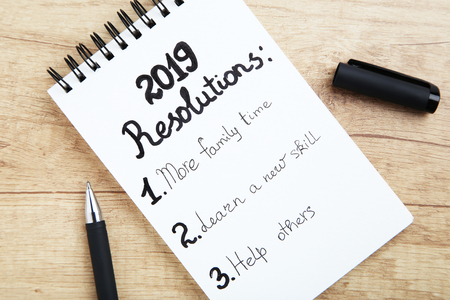 2019
Resolutions:
1. More family time
2. Learn a new skill
3. Help others